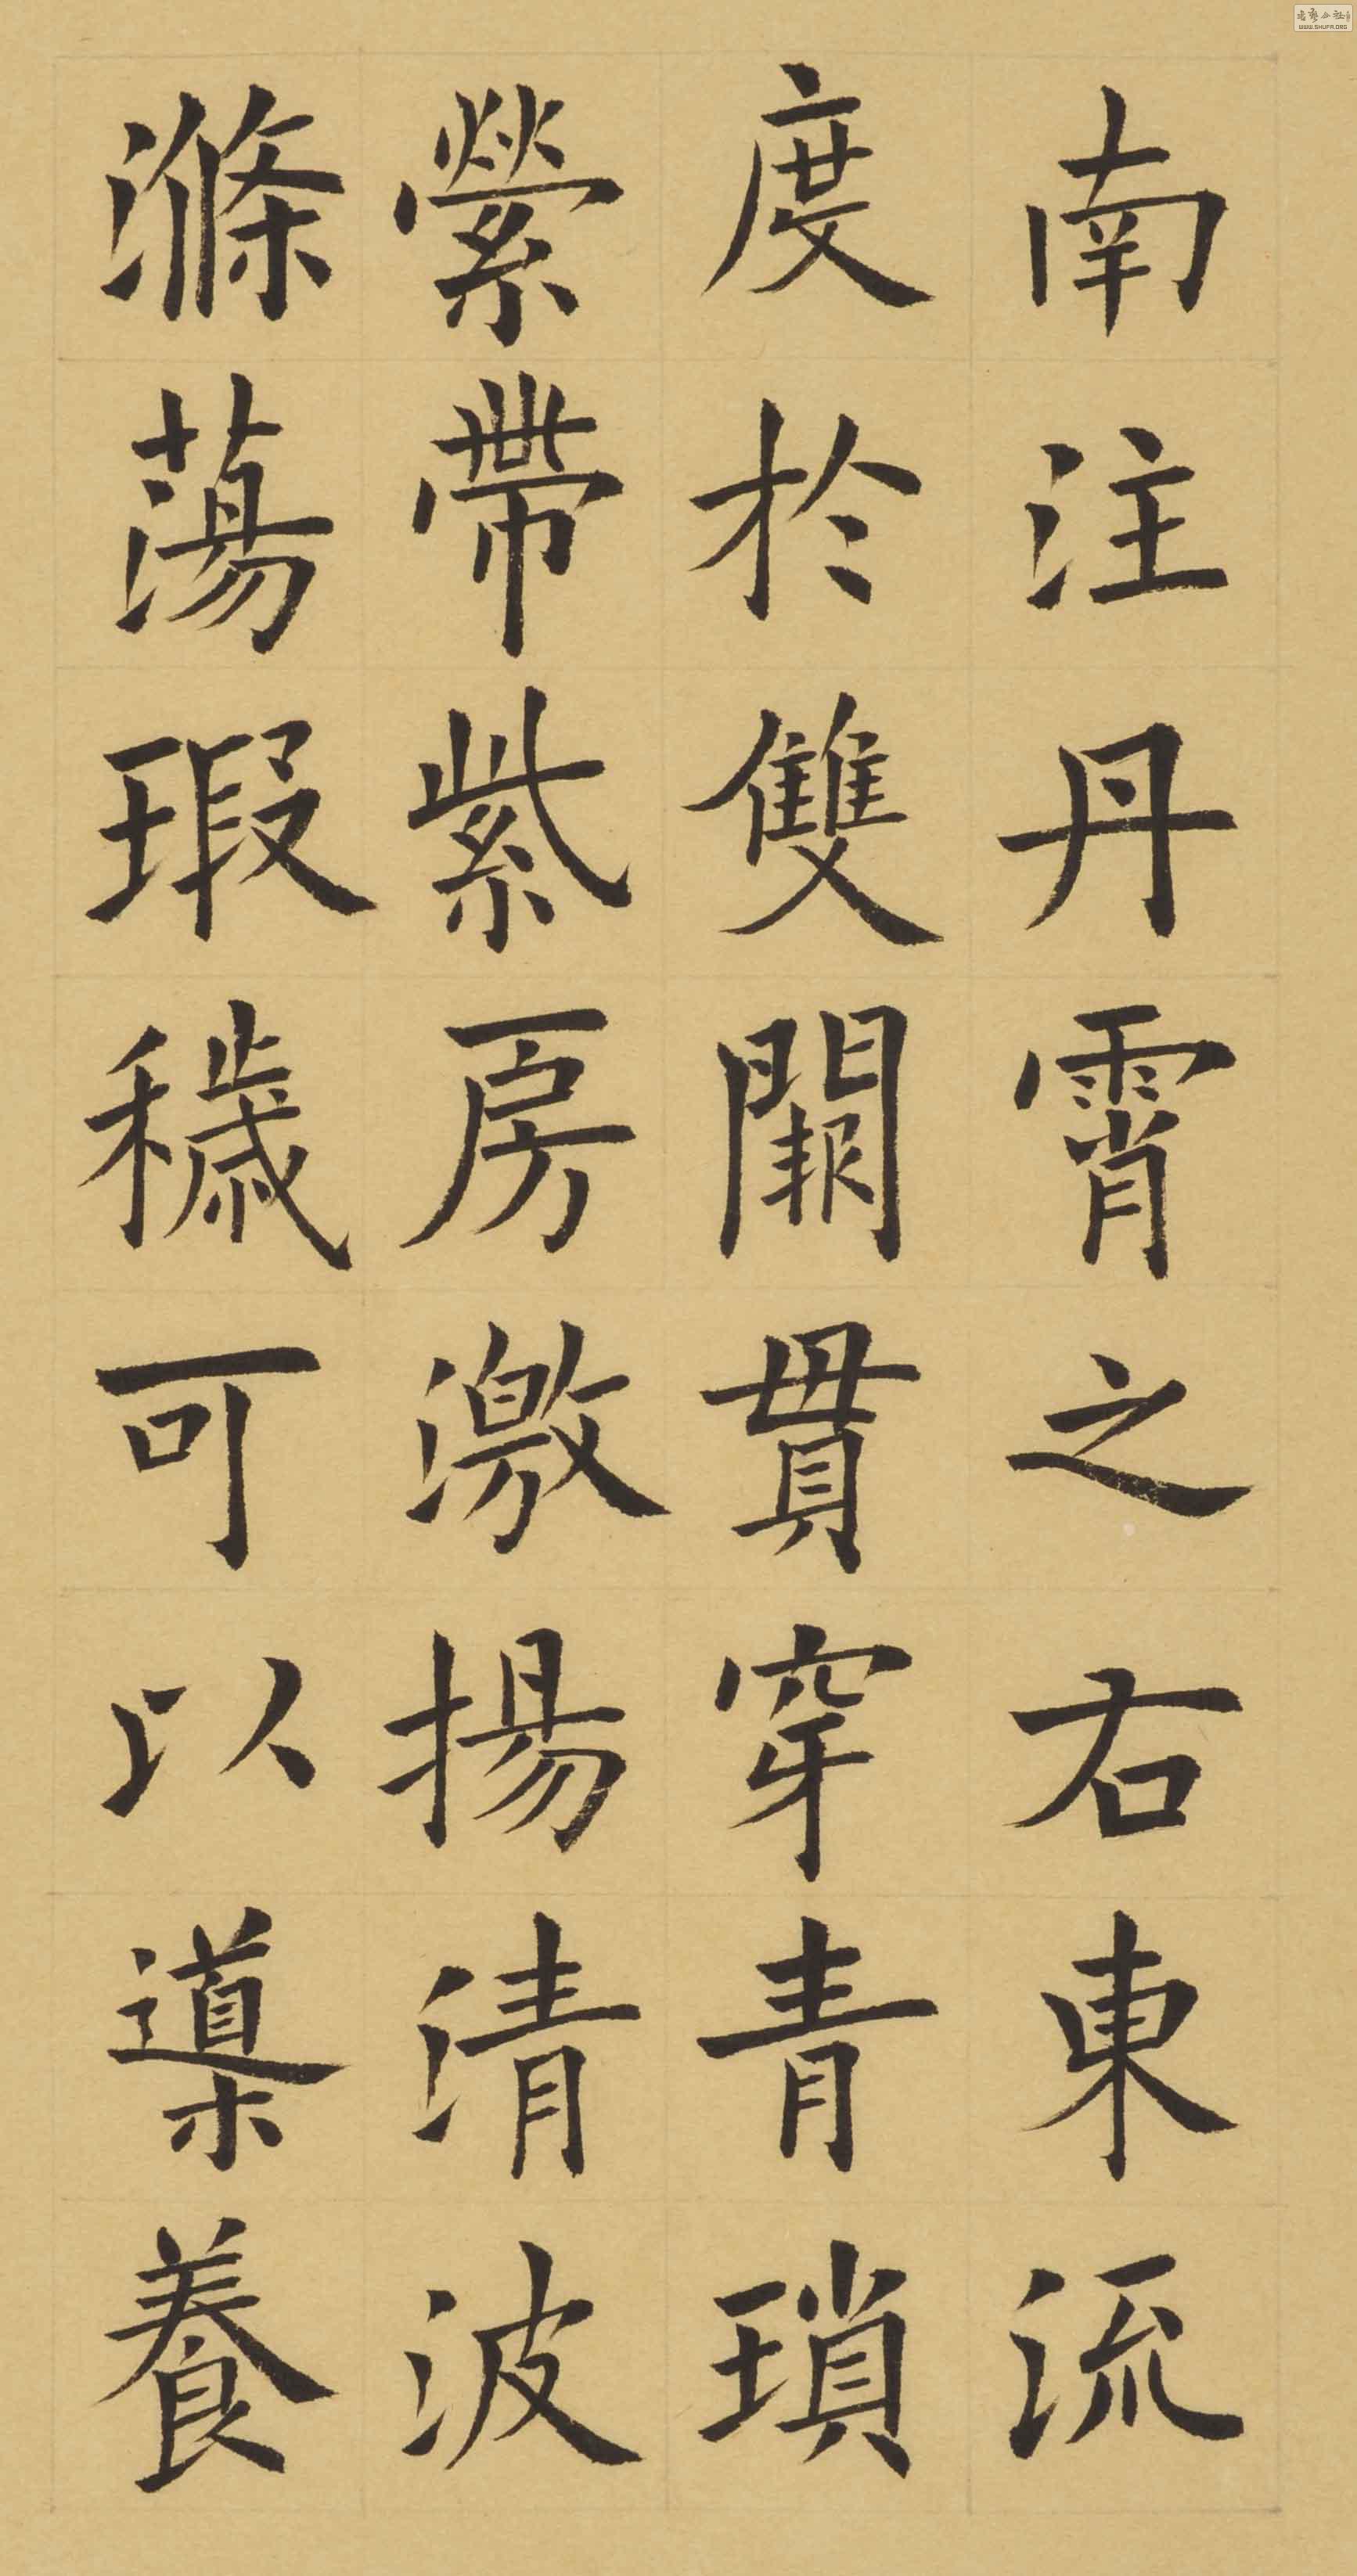 南注丹霄之右東流
度於雙闕貫穿青瑣
縈帶紫房激揚清波
滌蕩瑕穢可以導養
WWW.SHUFA.ORG